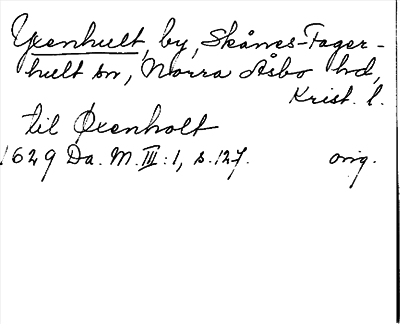 Yxenhult, by, Skånes-Fager-
hult sn, Norra Åsbo hd,
Krist. l.
til Øxenholt
1629 Da. M. III: 1, s. 127. orig.